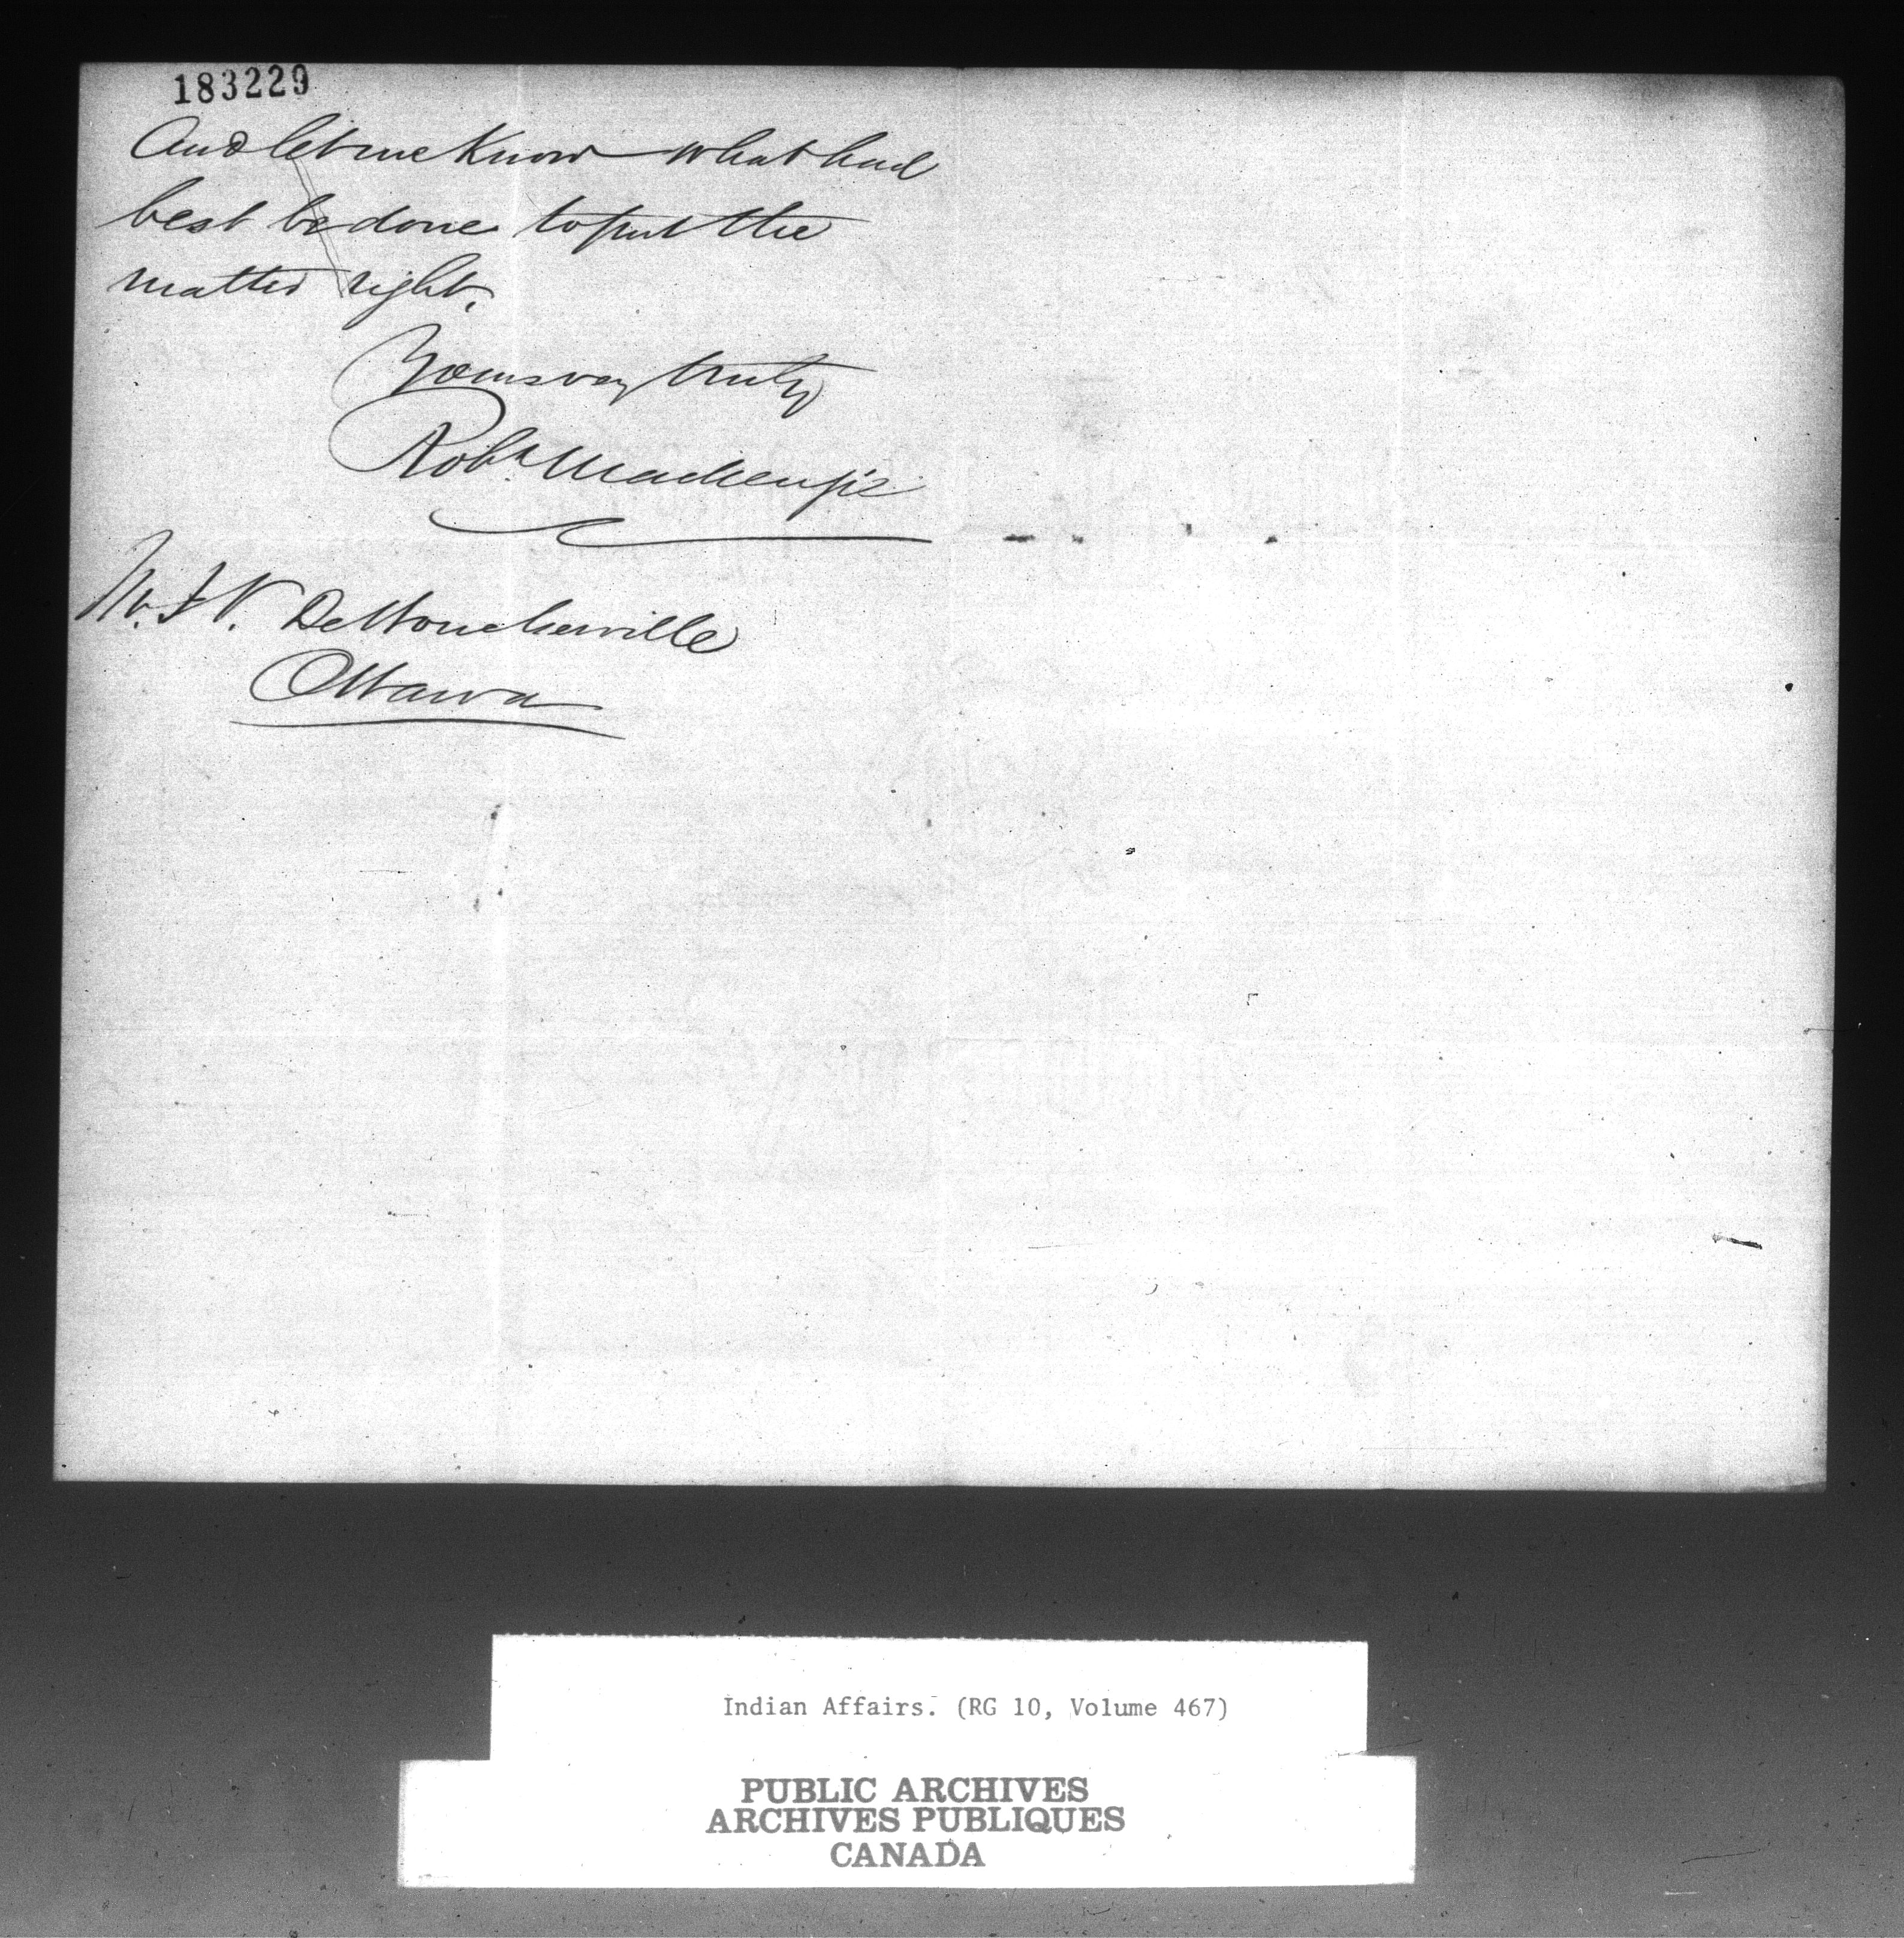 183229
And let me Know what had
best be done to put the
matter right.
Yours very truly
Robt. Mackenzie
Mr. F V. DeBoucherville
Ottawa
Indian Affairs. (RG 10, Volume 467)
PUBLIC ARCHIVES
ARCHIVES PUBLIQUES
CANADA